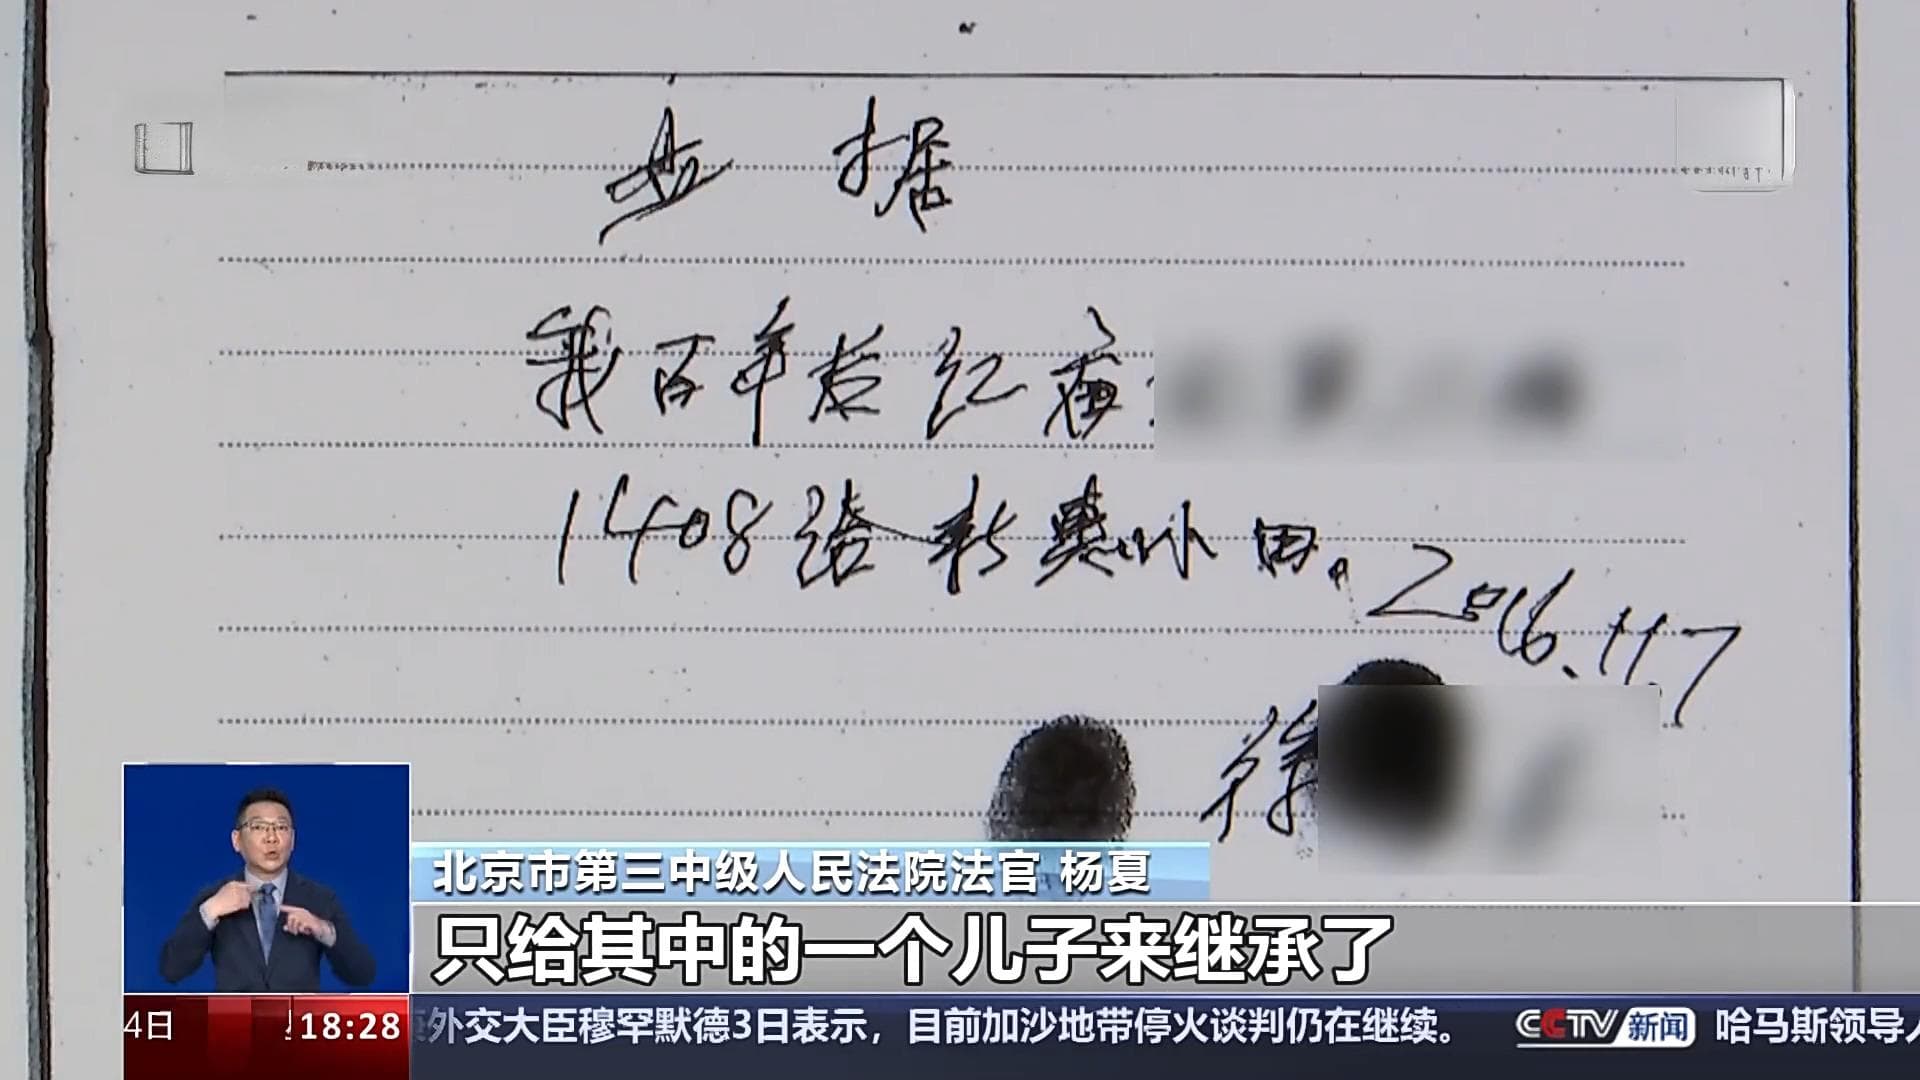 据
我百年后红庙
1408给
2016.11.7
徐
北京市第三中级人民法院法官 杨夏
只给其中的一个儿子来继承了
4日 18:28 外交大臣穆罕默德3日表示，目前加沙地带停火谈判仍在继续。 CCTV新闻 哈马斯领导人